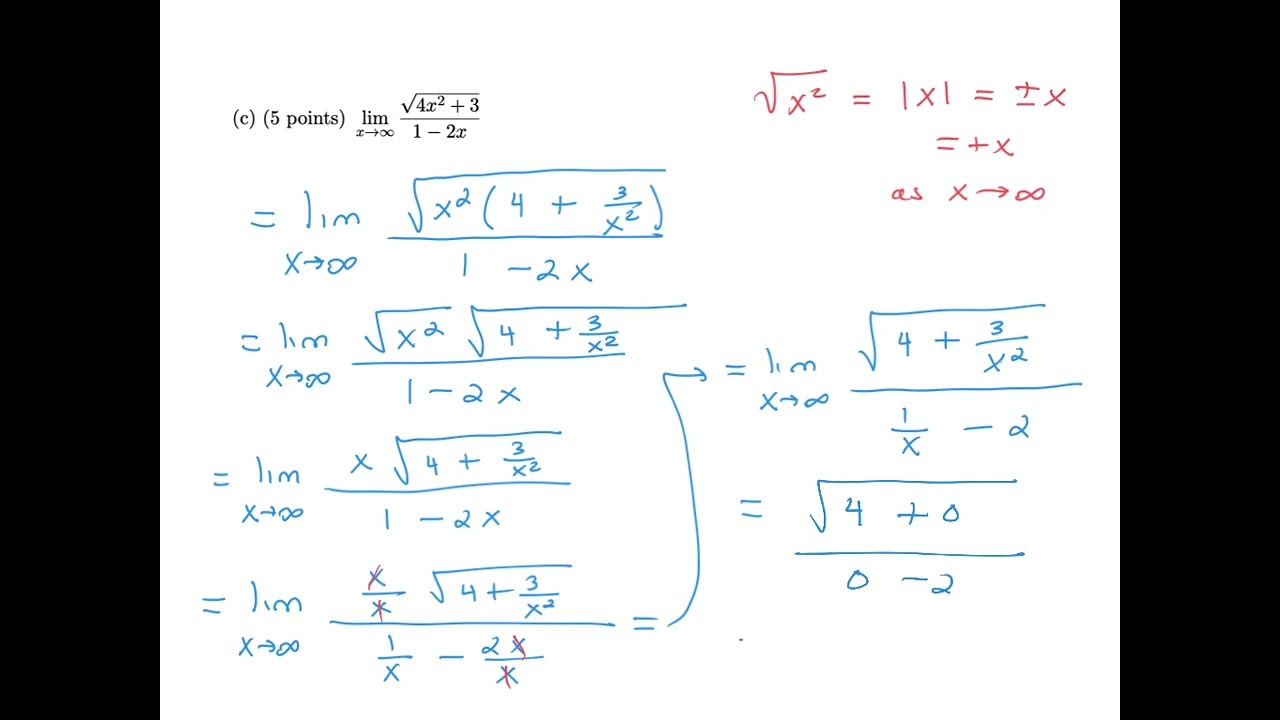 (c) (5 points) lim x→∞ √(4x² + 3) / (1 − 2x)
√x² = |x| = ±x
= +x
as x → ∞
= lim x→∞ √(x² (4 + 3/x²)) / (1 − 2x)
= lim x→∞ √x² √(4 + 3/x²) / (1 − 2x)
= lim x→∞ x √(4 + 3/x²) / (1 − 2x)
= lim x→∞ (x/x) √(4 + 3/x²) / (1/x − 2x/x) =
= lim x→∞ √(4 + 3/x²) / (1/x − 2)
= √(4 + 0) / (0 − 2)